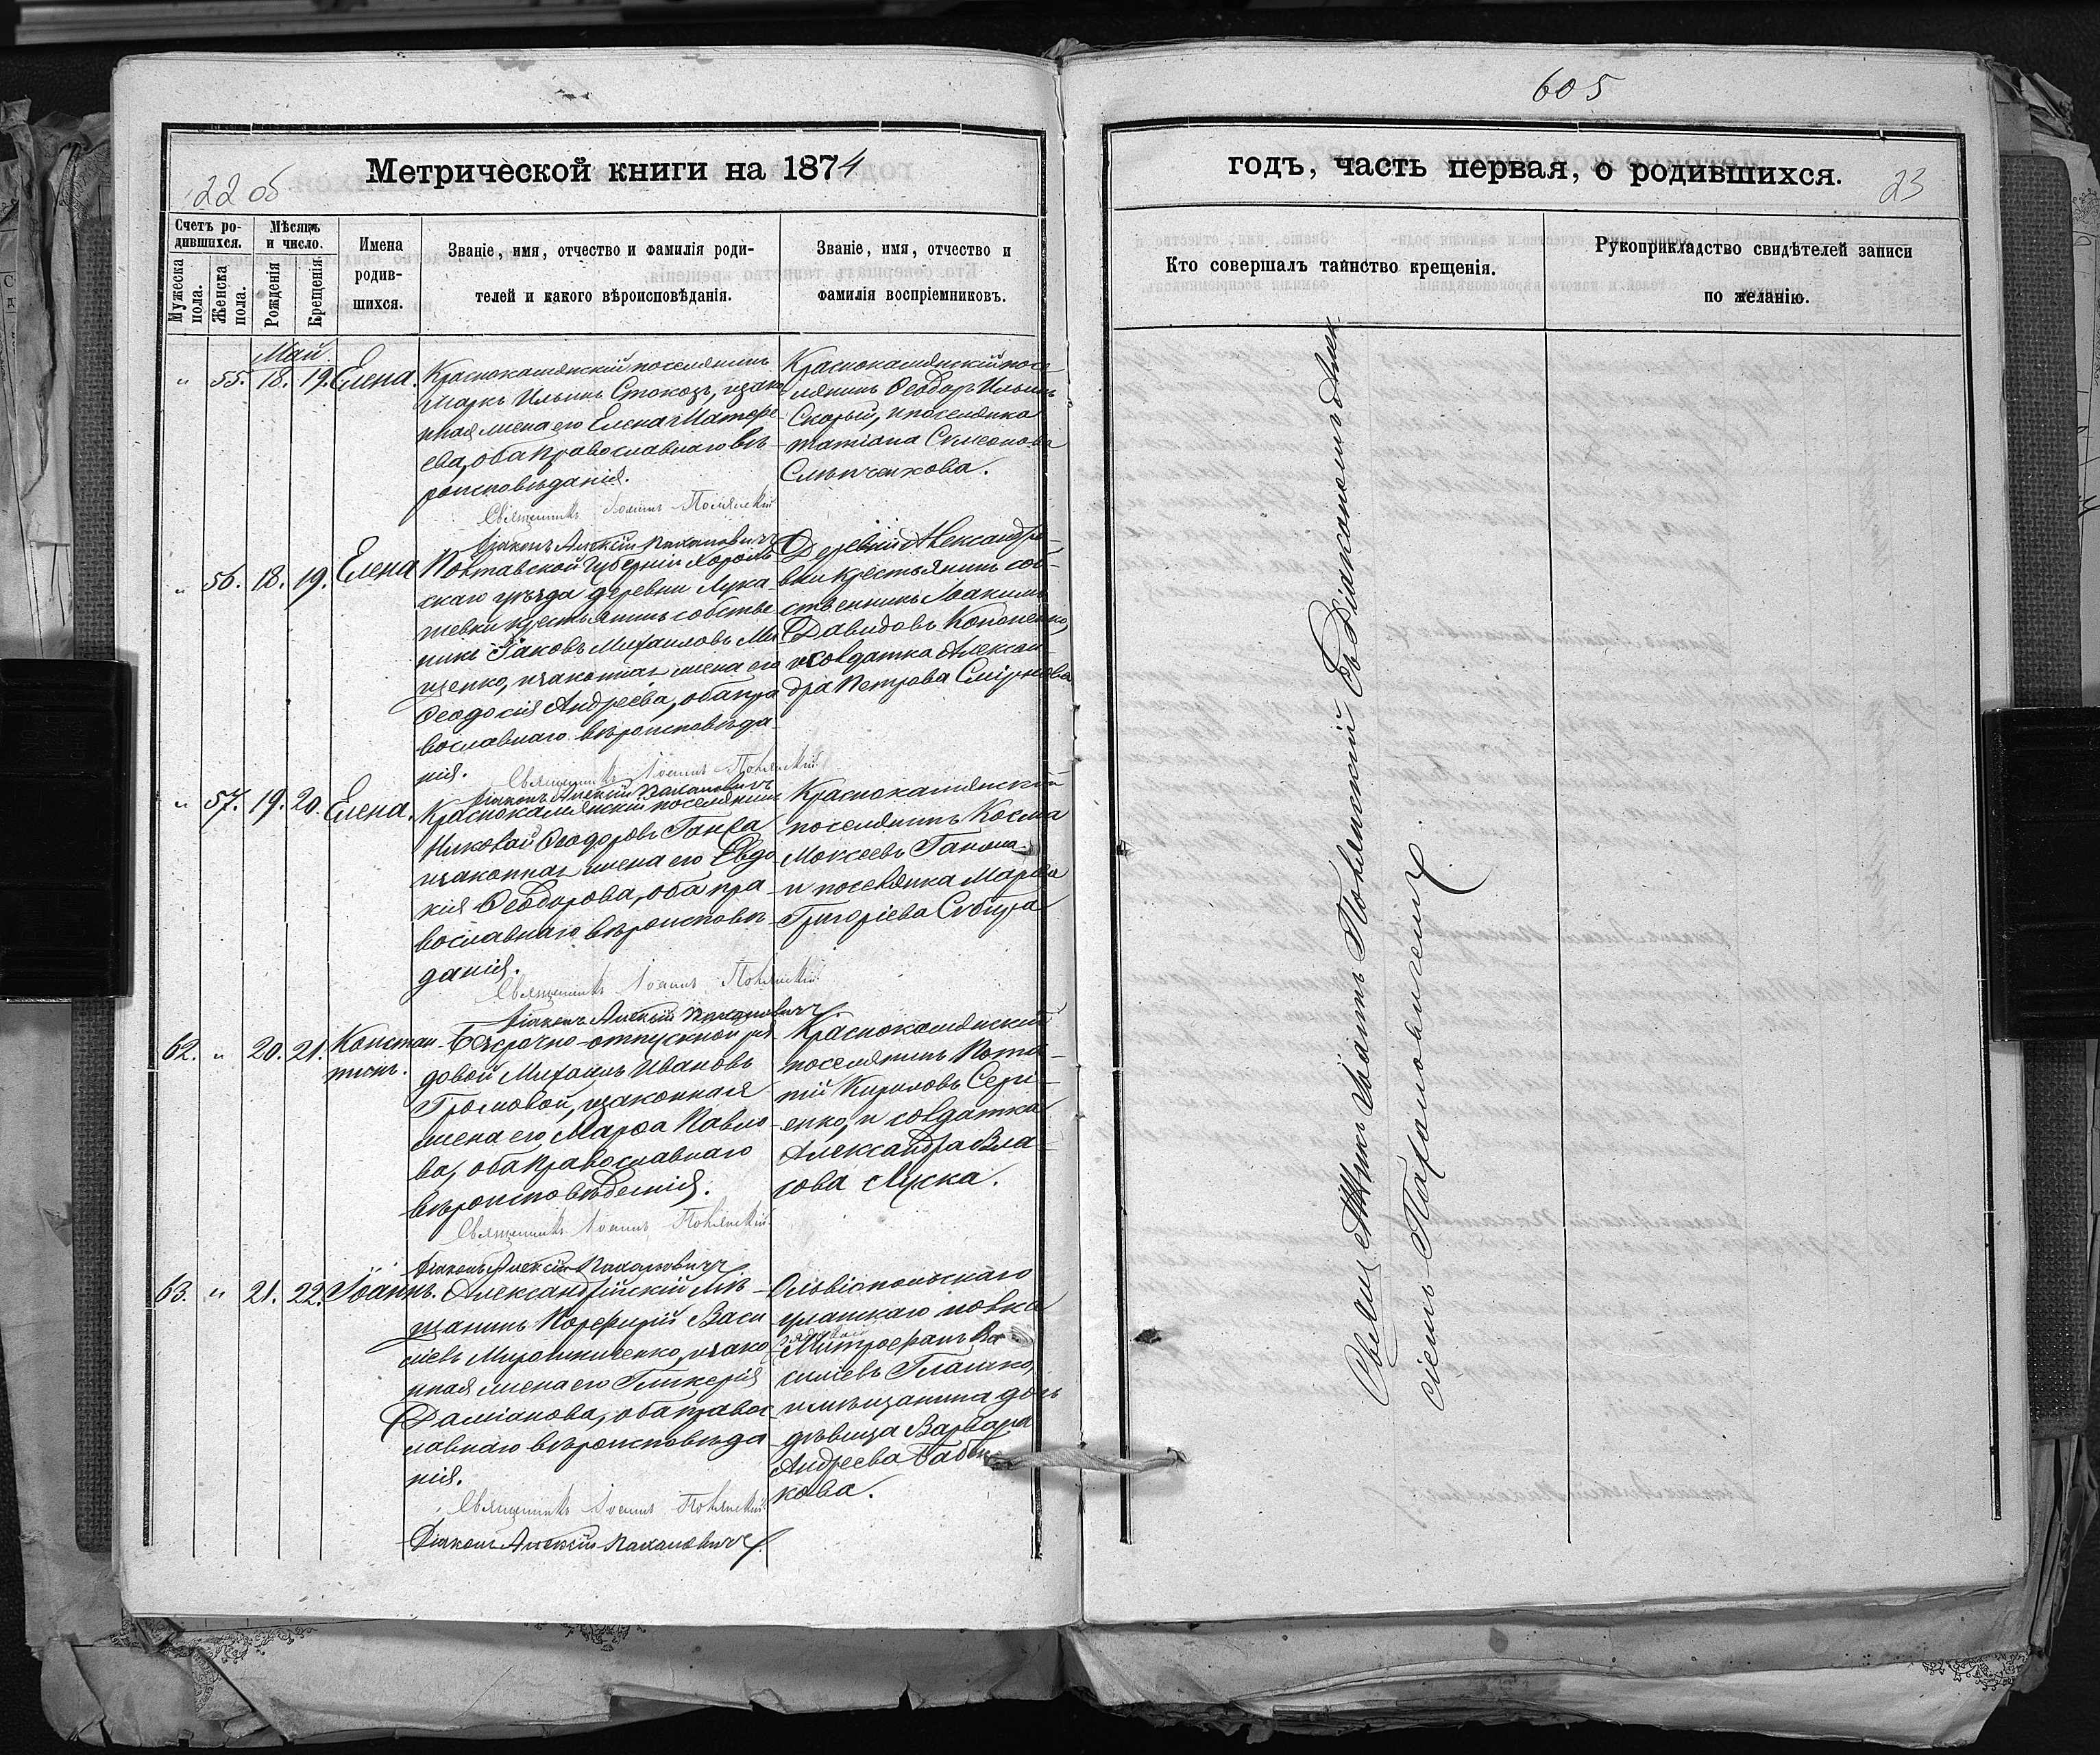 605
Метрической книги на 1874
22 об
Счетъ родившихся.
Мужеска пола.
Женска пола.
Мѣсяцъ и число.
Рожденія
Крещенія.
Имена
родив-
шихся.
Званіе, имя, отчество и фамилія роди-
телей и какого вѣроисповѣданія.
Званіе, имя, отчество и
фамилія воспріемниковъ.
Май
" 55. 18. 19. Елена.
Краснокаменскій поселянинъ
Маркъ Ильинъ, зако
нная жена его Елена Матфе
ева, оба православнаго вѣ-
роисповѣданія.
Священникъ Іоаннъ
Діаконъ Алексій
Краснокаменскій посе-
лянинъ Ѳеодоръ Ильинъ
Скорый, и поселянка
Татіана Симеонова
" 56. 18. 19. Елена
Полтавской губерніи Хороль
скаго уѣзда деревни Лука-
шевки крестьянинъ собстве
никъ Іаковъ Михаиловъ Ми
щенко, и законная жена его
Ѳеодосія Андреева, оба пра
вославнаго вѣроисповѣда
нія.
Священникъ Іоаннъ
Діаконъ Алексій
Деревни Александро-
вки крестьянинъ соб-
ственникъ Іоакимъ
Давидовъ Кононенко,
и солдатка Алексан-
дра Петрова Смірнова
" 57. 19. 20. Елена.
Краснокаменскій поселянинъ
Николай Ѳеодоровъ
и законная жена его Евдо-
кія Ѳеодорова, оба пра-
вославнаго вѣроисповѣ-
данія.
Священникъ Іоаннъ
Діаконъ Алексій
Краснокаменскій
поселянинъ Косма
Мокеевъ
и поселянка Марѳа
Григоріева
62. " 20. 21. Констан
тинъ.
Безсрочно-отпускной ря
довой Михаилъ Ивановъ
Громовой, и законная
жена его Марѳа Павло-
ва, оба православнаго
вѣроисповѣденія.
Священникъ Іоаннъ
Діаконъ Алексій
Краснокаменскій
поселянинъ
Кириловъ Серги-
енко, и солдатка
Александра Вла-
сова Луска.
63. " 21. 22. Іоаннъ.
Александрійскій мѣ-
щанинъ Порфирій Васи
ліевъ Мирошниченко, и зако
нная жена его Гликерія
Даміанова, оба правос
лавнаго вѣроисповѣда
нія.
Священникъ Іоаннъ
Діаконъ Алексій
Ольвіопольскаго
уланскаго полка
рядовой
Митрофанъ Ва
силіевъ
и мѣщанина дочь
дѣвица Варвара
Андреева
кова.
годъ, часть первая, о родившихся.
23
Кто совершалъ таинство крещенія.
Рукоприкладство свидѣтелей записи
по желанію.
Священникъ Іоаннъ съ Діакономъ Алек
сіемъ